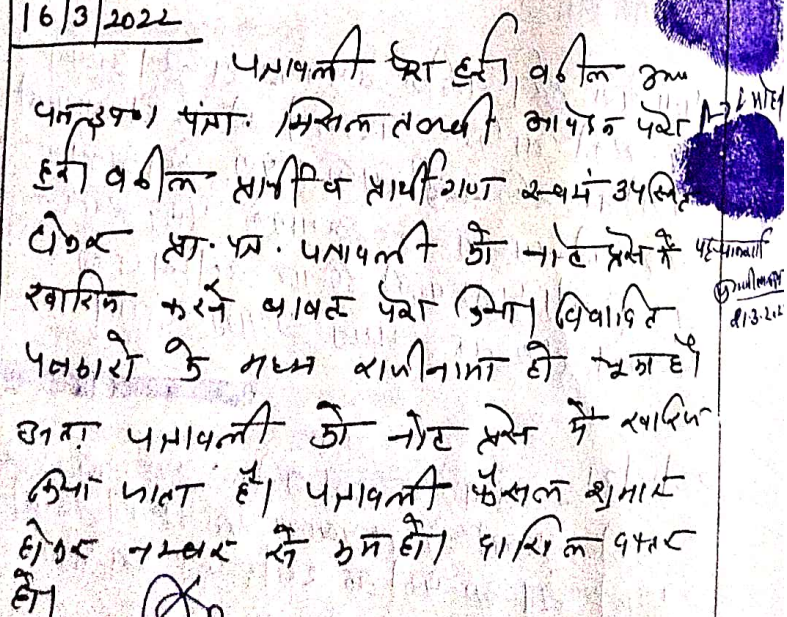 16/3/2022
पत्रावली पेश हुई। वकील उभय
पक्ष उप०। मिसल तलबी आवेदन पेश
हुई। वकील प्रार्थी व प्रार्थीगण स्वयं उपस्थित
होकर प्रा. पत्र. पत्रावली को नोट प्रेस में
खारिज करने बाबत पेश किया। विवादित
पक्षकारों के मध्य राजीनामा हो चुका है।
अतः पत्रावली को नोट प्रेस में खारिज
किया जाता है। पत्रावली फैसल शुमार
होकर नम्बर से कम हो। दाखिल दफ्तर
हो।